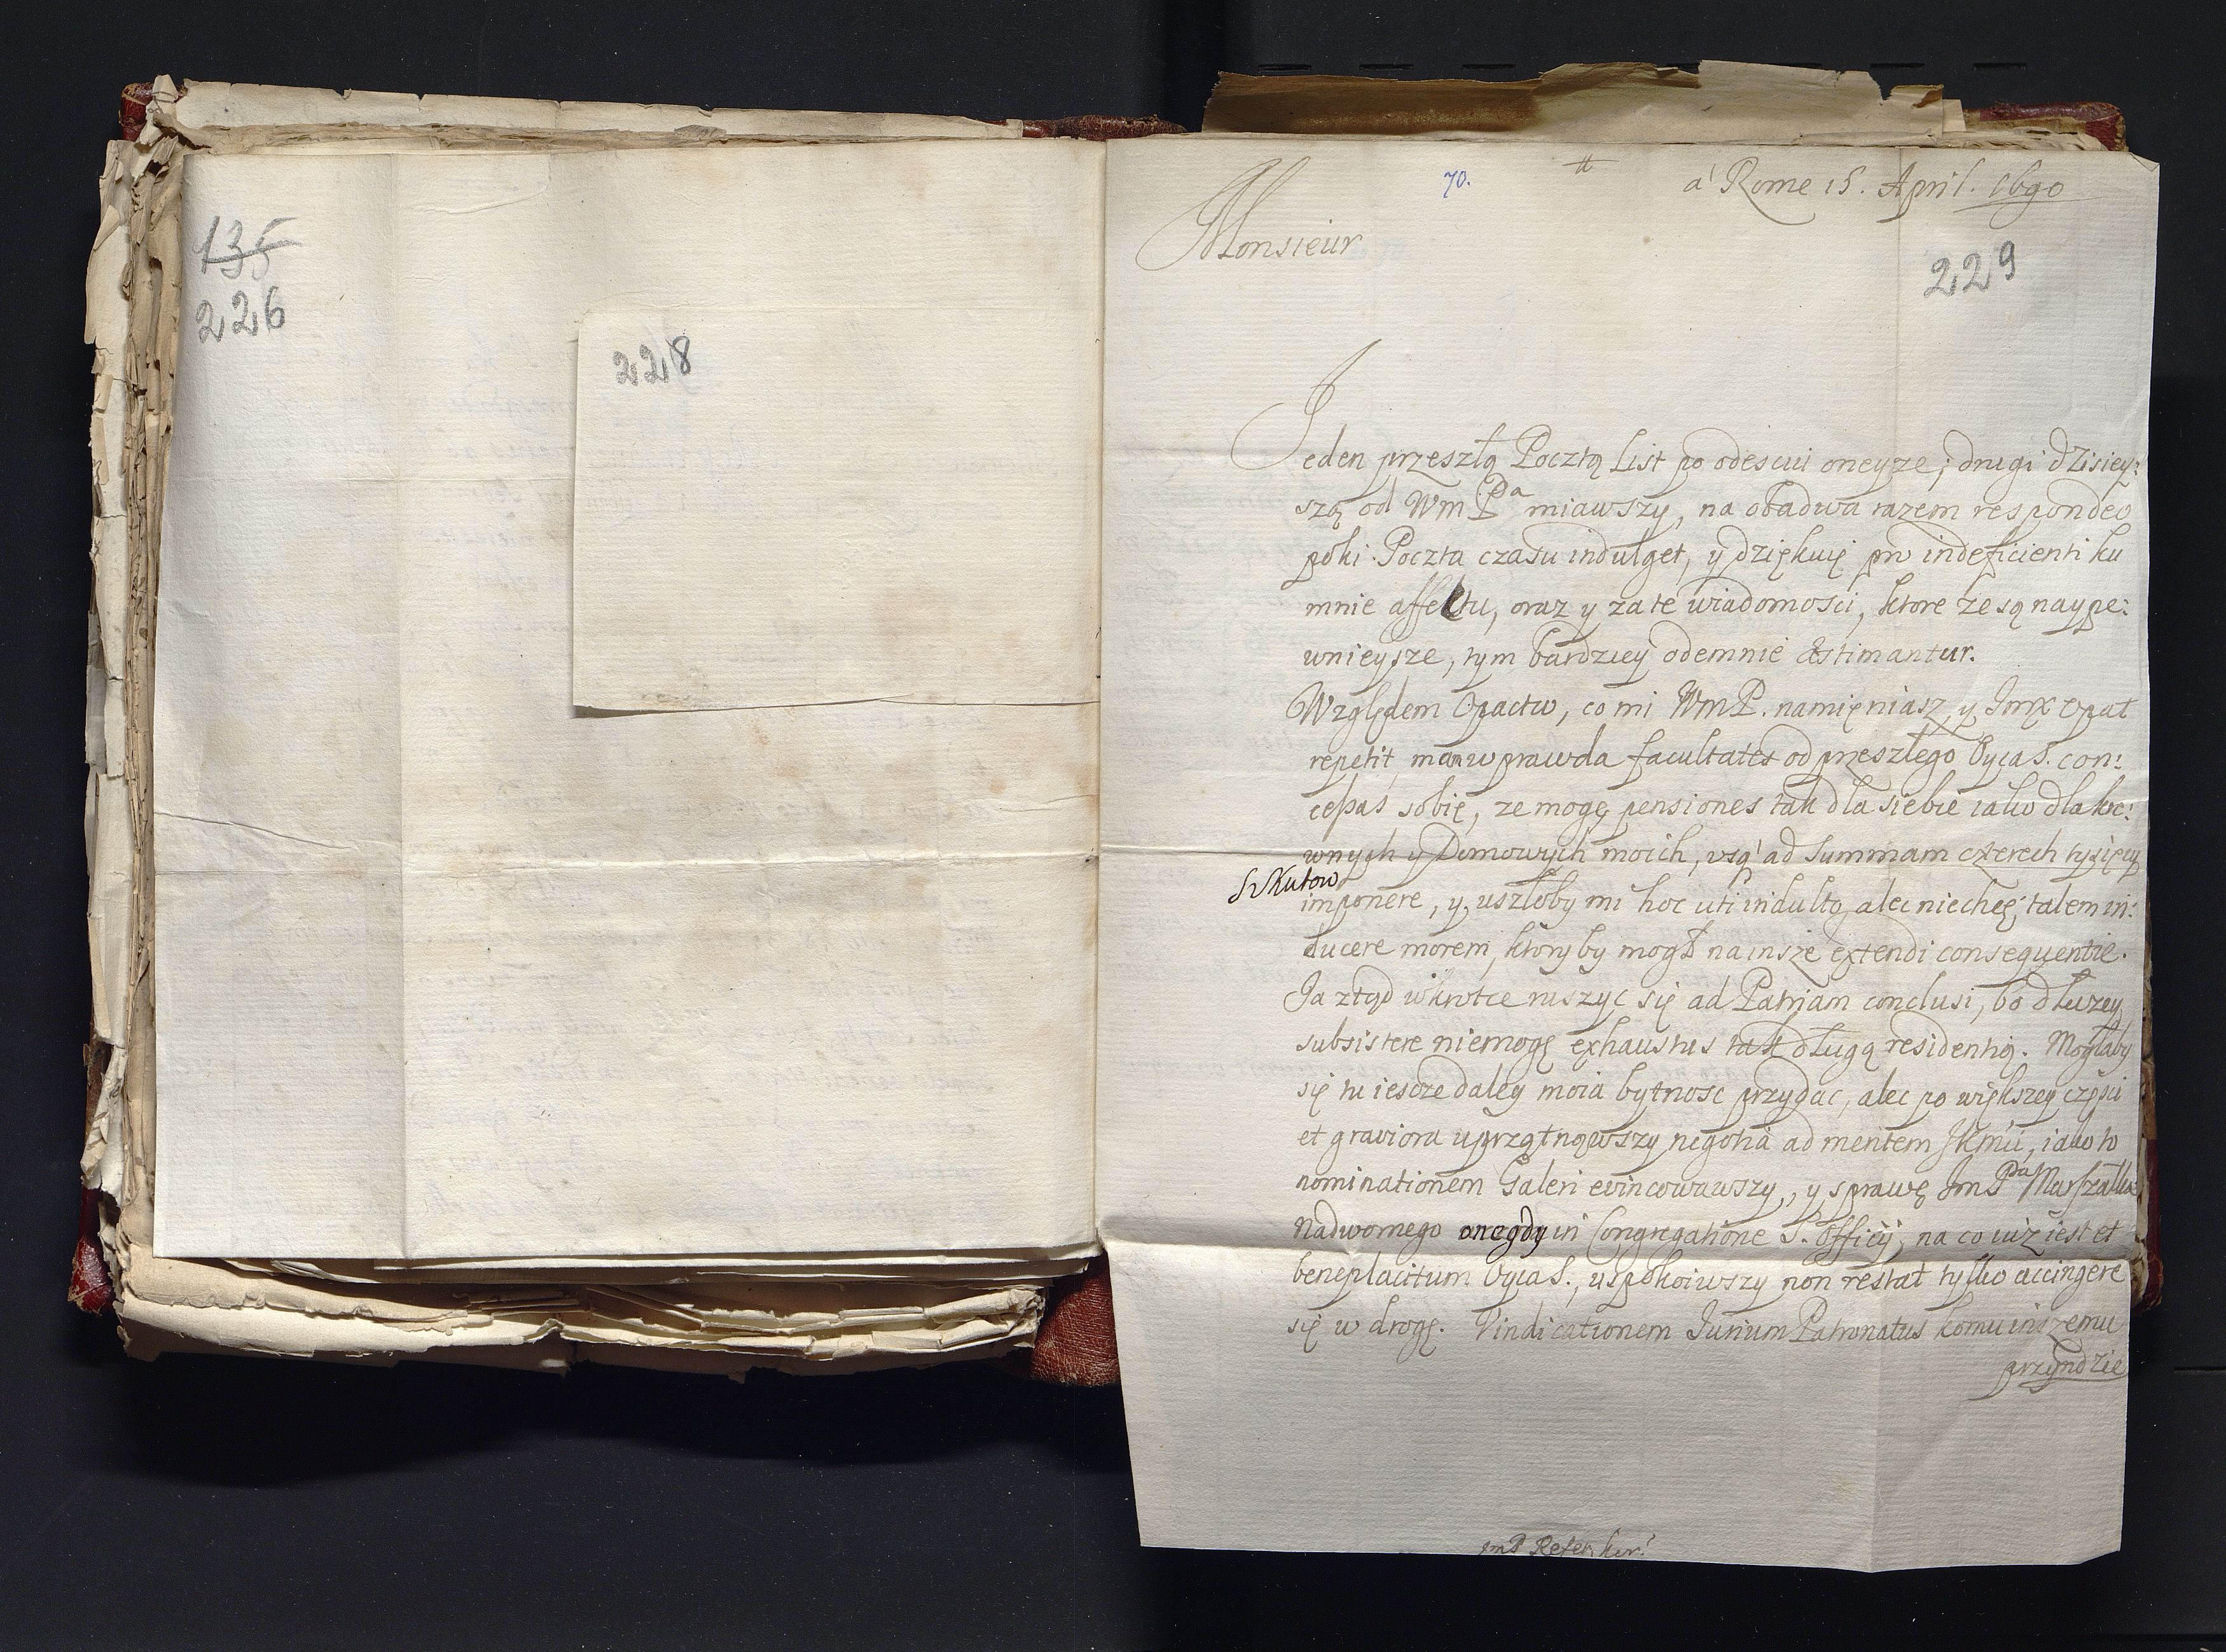 135
226
228
70. #
a' Rome 15. April. 1690
Monsieur
229
Jeden przeszłą Pocztą List po odesciu oneyze; drugi dzisiey:
szą od Wm Pa miawszy, na obadwa razem respondeo
poki Poczta czasu indulget, y dziękuię pro indeficienti ku
mnie affektu, oraz y za te wiadomosci, ktore ze są naype:
wnieysze, tym bardziey odemnie æstimantur.
Względem Opactw, co mi WmP. namięniasz, y Jmx Opat
repetit, mam wprawdzie facultates od przeszłego Oyca S. con:
cessas sobie, ze mogę pensiones tak dla siebie iako dla kre:
wnych y Domowych moich, usq' ad Summam czterech tysięcy
Szkutow
imponere, y uszłoby mi hoc uti indulto, alec niechcę talem in:
ducere morem, ktory by mogł na insze extendi consequentie.
Ja ztąd wkrotce ruszyc się ad Patriam conclusi, bo dłuzey
subsistere niemogę exhaustus tak długą residentią. Mogłaby
się tu iescze daley moia bytnosc przydac, alec po większey częsci
et graviora uprzątnąwszy negotia ad mentem JKmci, iako to
nominationem Galeri evincowawszy, y sprawę Jm Pa Marszałka
Nadwornego onegdy in Congregatione S. Officij, na co iuz iest et
beneplacitum Oyca S., uspokoiwszy non restat tylko accingere
się w drogę. Vindicationem Jurium Patronatus komu inszemu
przyndzie
JmP Refer. kor.